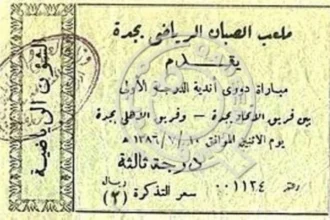 ملعب الصبان الرياضي بجدة
يقدم
مباراة دوري أندية الدرجة الأولى
بين فريق الاتحاد بجدة - وفريق الاهلي بجدة
يوم الاثنين الموافق ١٠/٧/١٣٨٦ هـ
درجة ثالثة
رقم ٠٠١١٢٤
سعر التذكرة (٢) ريال
الشئون الرياضية